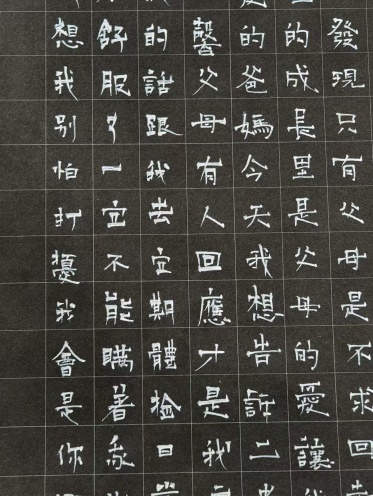 發現只有父母是不求回
的成長里是父母的愛讓
的爸媽今天我想告訴二
馨父母有人回應才是我
的話跟我去定期體檢日
舒服了一定不能瞞著
想我別怕打擾我會是你